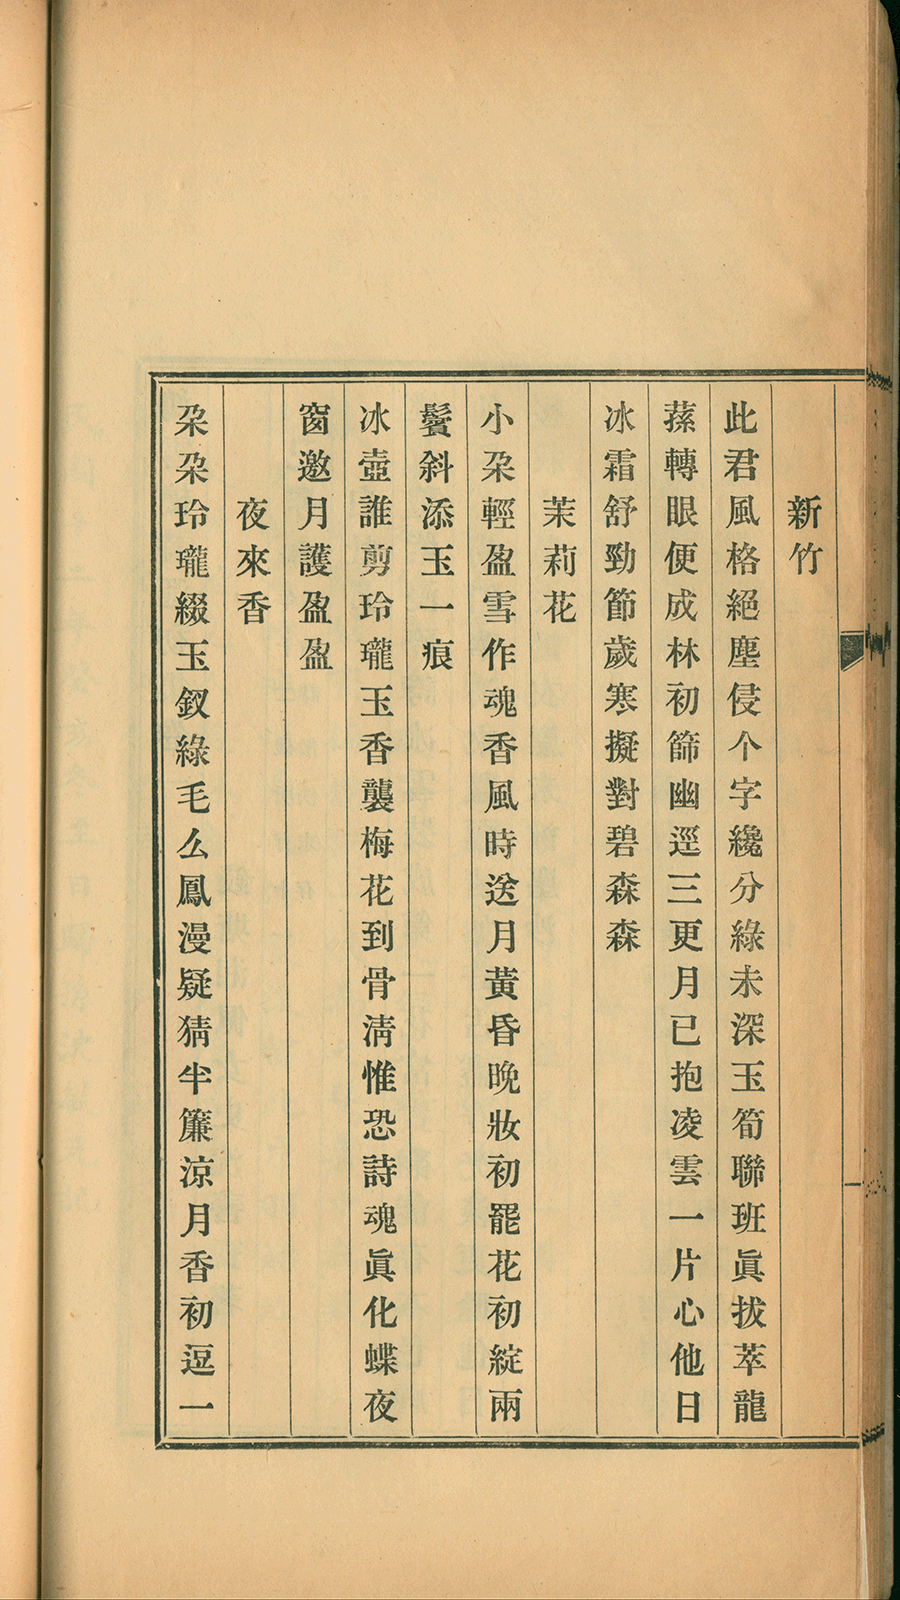 新竹
此君風格絕塵侵个字纔分綠未深玉筍聯班眞拔萃龍
蓀轉眼便成林初篩幽逕三更月已抱凌雲一片心他日
冰霜舒勁節歲寒擬對碧森森
茉莉花
小朶輕盈雪作魂香風時送月黃昏晚妝初罷花初綻兩
鬢斜添玉一痕
冰壺誰剪玲瓏玉香襲梅花到骨淸惟恐詩魂眞化蝶夜
窗邀月護盈盈
夜來香
朶朶玲瓏綴玉釵綠毛么鳳漫疑猜半簾涼月香初逗一